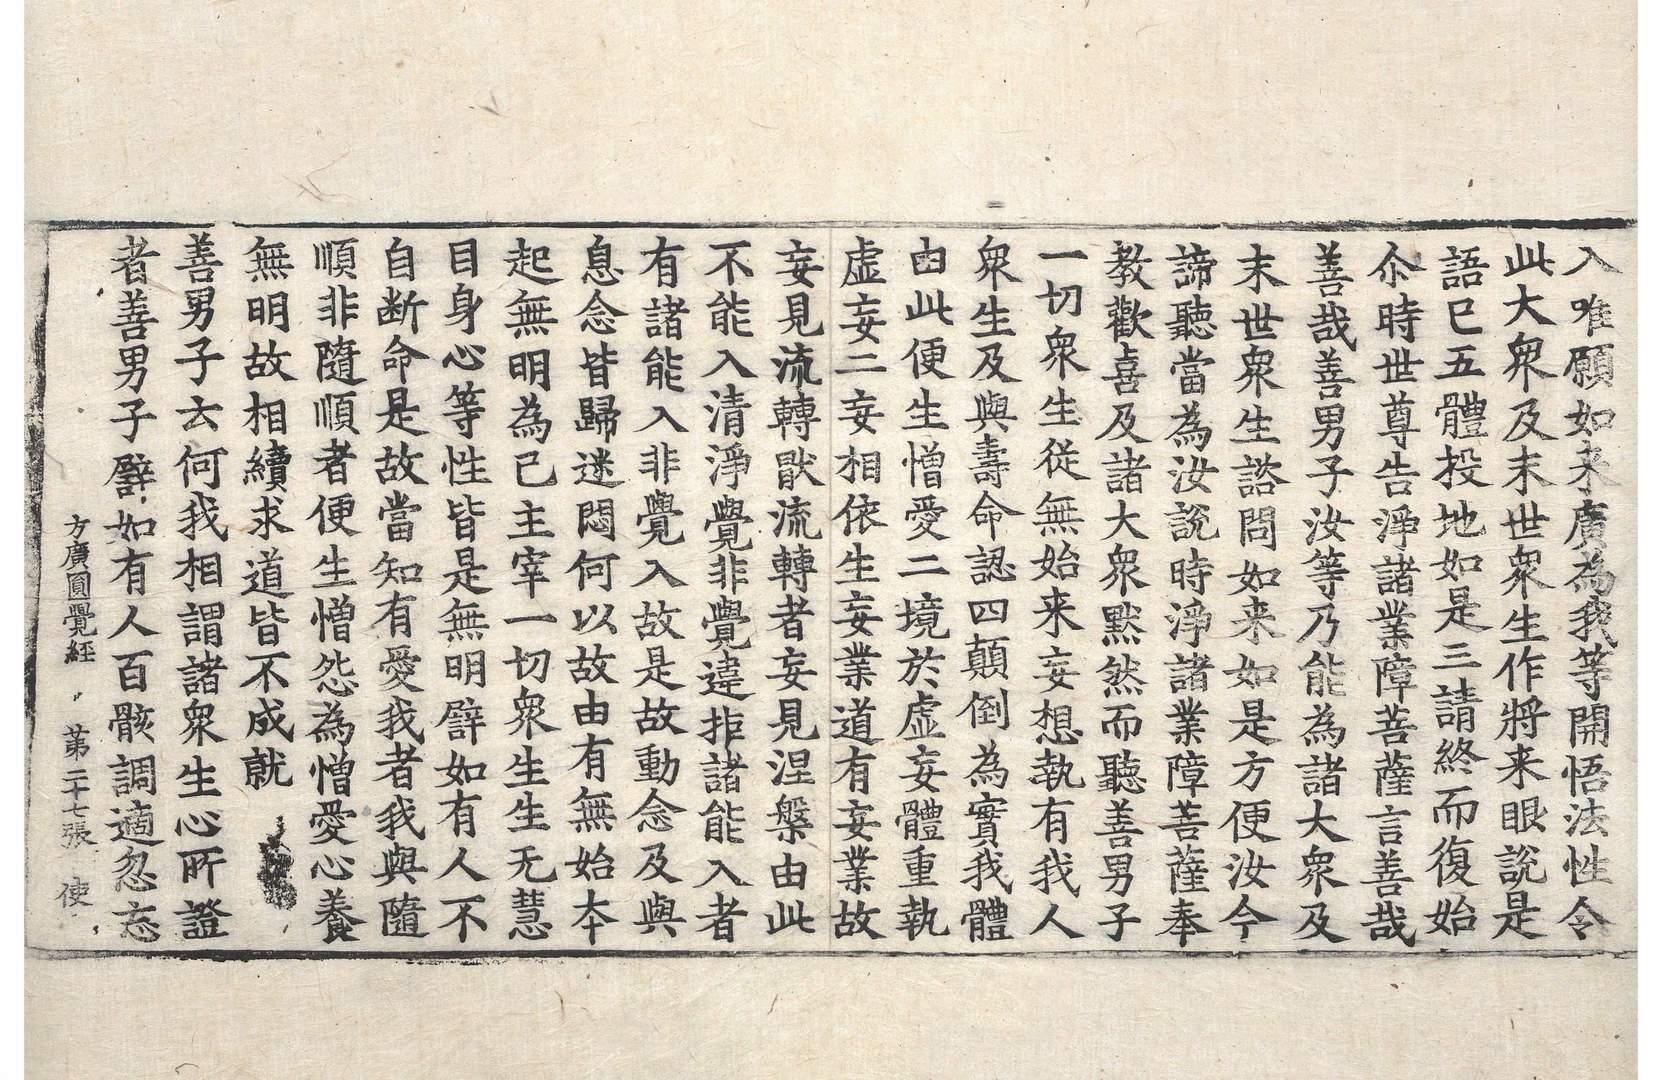 入唯願如来廣為我等開悟法性令
此大衆及末世衆生作將来眼說是
語巳五體投地如是三請終而復始
尒時世尊告淨諸業障菩薩言善哉
善哉善男子汝等乃能為諸大衆及
末世衆生諮問如来如是方便汝今
諦聽當為汝說時淨諸業障菩薩奉
教歡喜及諸大衆默然而聽善男子
一切衆生從無始来妄想執有我人
衆生及與壽命認四顛倒為實我體
由此便生憎愛二境於虚妄體重執
虚妄二妄相依生妄業道有妄業故
妄見流轉猒流轉者妄見涅槃由此
不能入清淨覺非覺違拒諸能入者
有諸能入非覺入故是故動念及與
息念皆歸迷悶何以故由有無始夲
起無明為己主宰一切衆生生无慧
目身心等性皆是無明譬如有人不
自断命是故當知有愛我者我與隨
順非隨順者便生憎怨為憎愛心養
無明故相續求道皆不成就
善男子云何我相謂諸衆生心所證
者善男子譬如有人百骸調適忽忘
方廣圓覺經 第二十七張 使